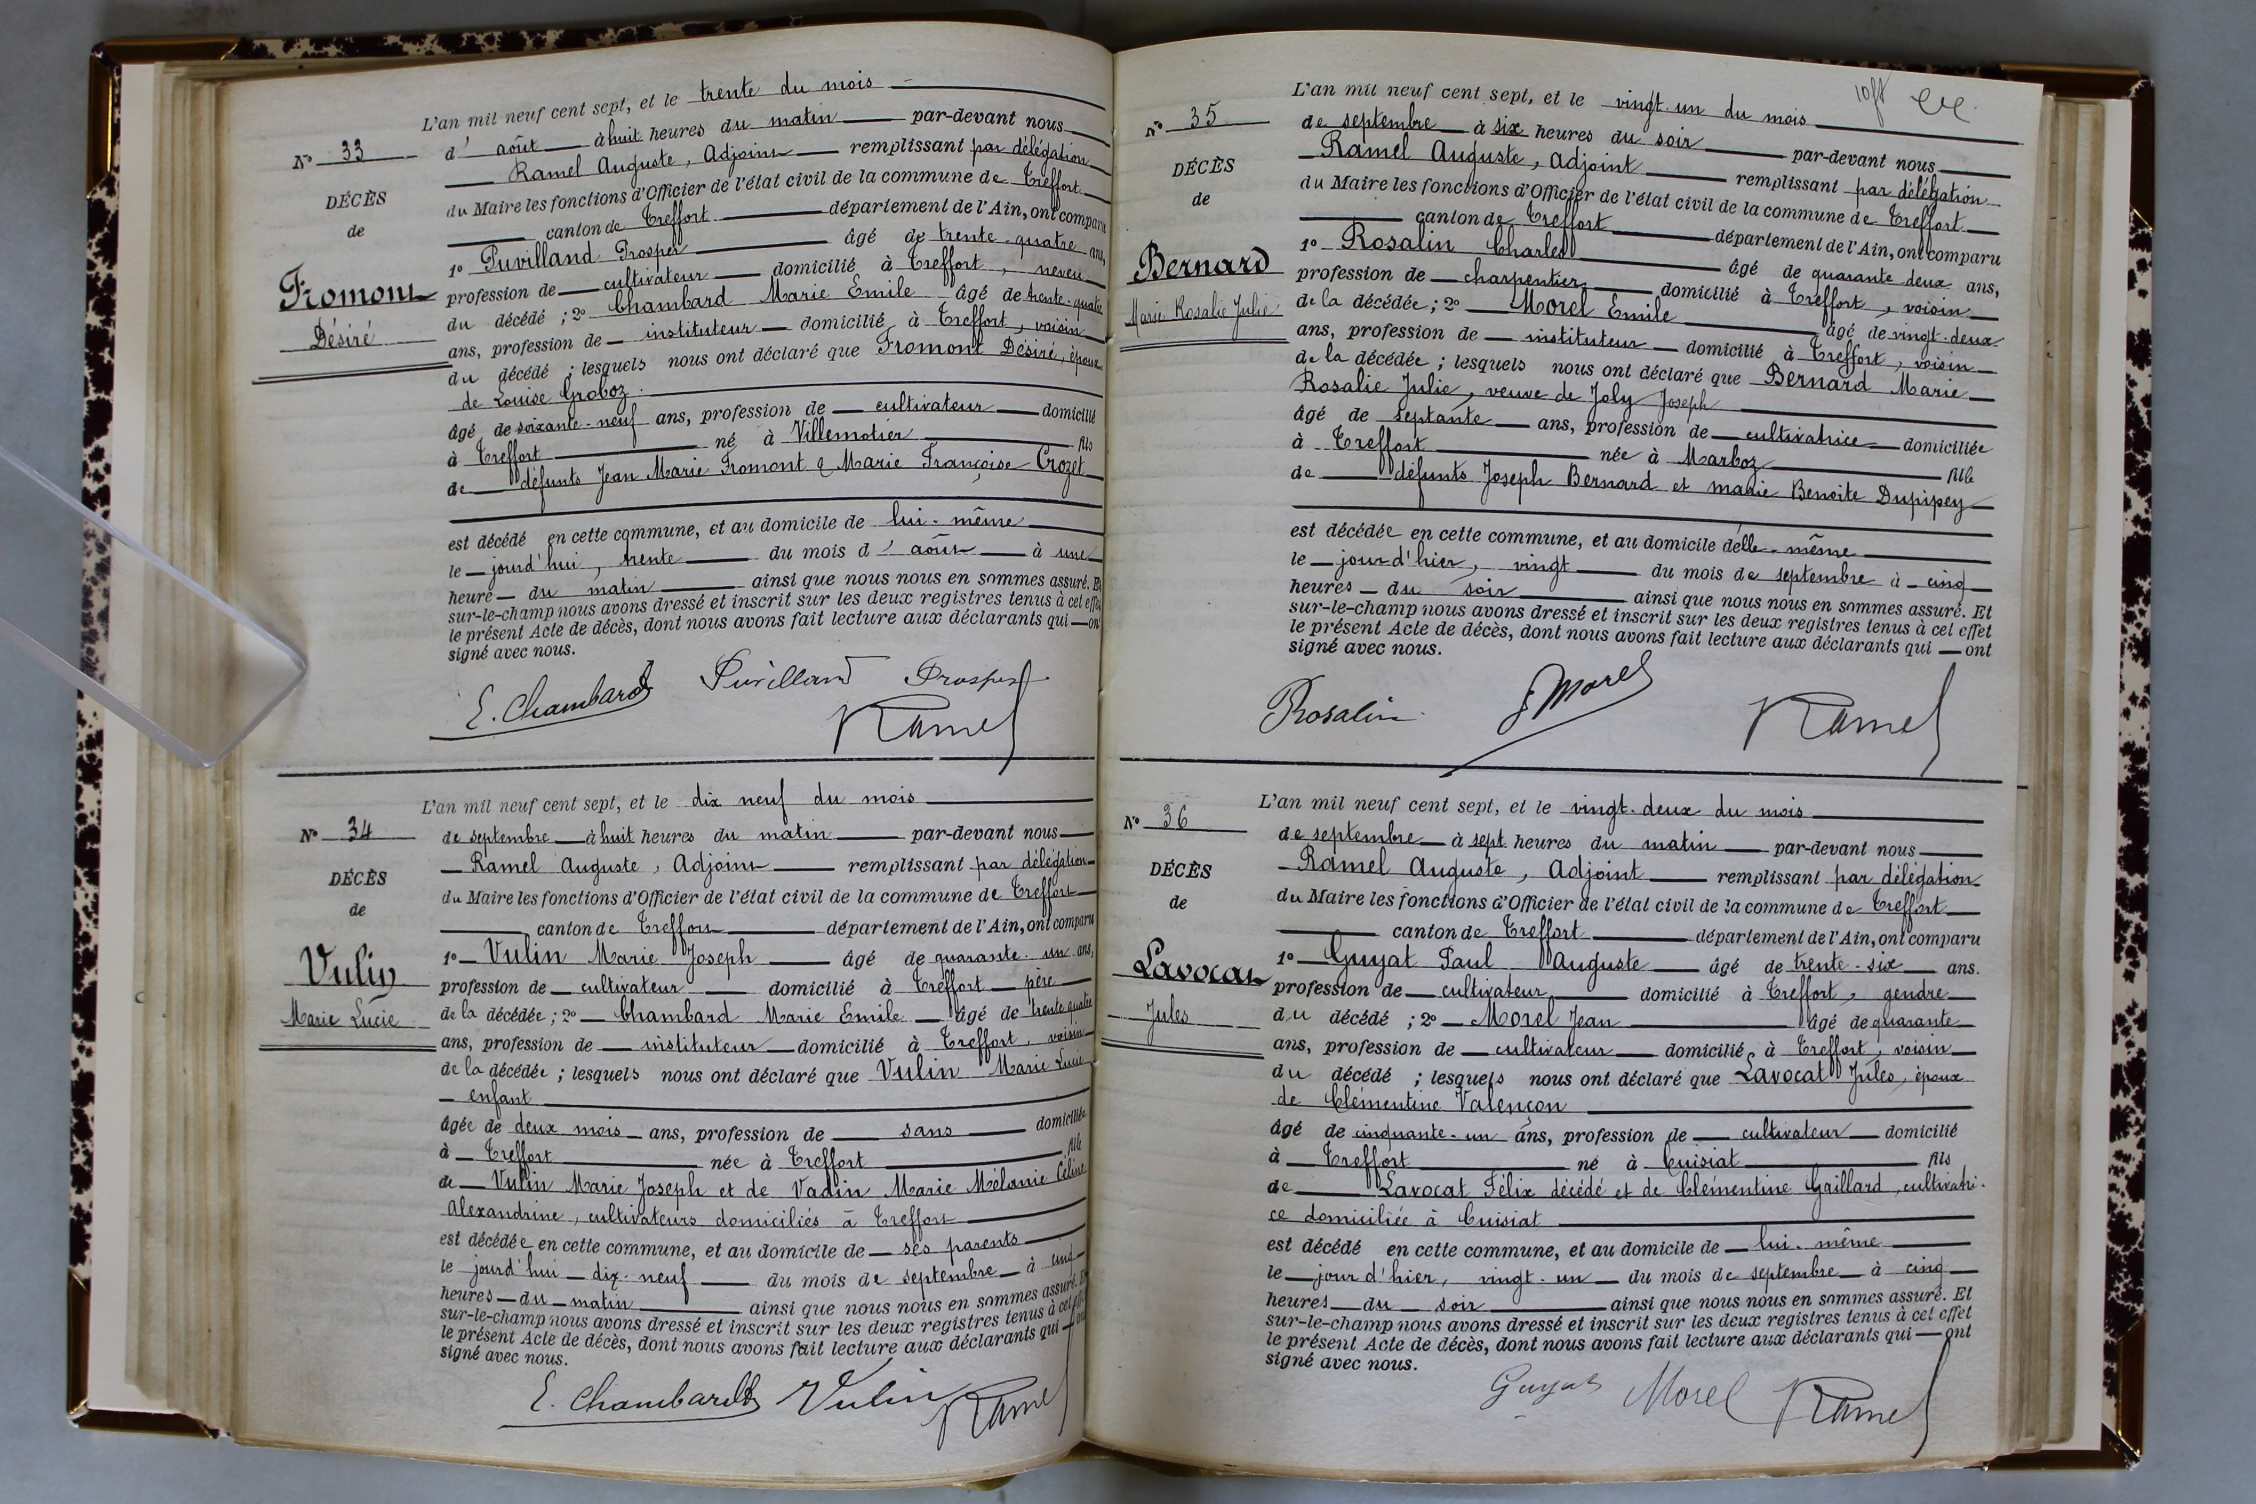 L'an mil neuf cent sept, et le trente du mois
N° 33
d' août à huit heures du matin par-devant nous
Ramel Auguste, Adjoint remplissant par délégation
DÉCÈS
du Maire les fonctions d'Officier de l'état civil de la commune de Treffort
de
canton de Treffort département de l'Ain, ont comparu
1° Puvilland Prosper âgé de trente-quatre ans,
Fromont
profession de cultivateur domicilié à Treffort, neveu
Désiré
du décédé ; 2° Chambard Marie Emile âgé de trente-quatre
ans, profession de instituteur domicilié à Treffort, voisin
du décédé ; lesquels nous ont déclaré que Fromont Désiré, époux
de Louise Groboz
âgé de soixante-neuf ans, profession de cultivateur domicilié
à Treffort né à Villemotier fils
de défunts Jean Marie Fromont & Marie Françoise Crozet
est décédé en cette commune, et au domicile de lui-même
le jourd'hui, trente du mois d'août à une
heure du matin ainsi que nous nous en sommes assuré. Et
sur-le-champ nous avons dressé et inscrit sur les deux registres tenus à cet effet
le présent Acte de décès, dont nous avons fait lecture aux déclarants qui ont
signé avec nous.
E. Chambard Puvilland Prosper
Ramel
L'an mil neuf cent sept, et le dix neuf du mois
N° 34
de septembre à huit heures du matin par-devant nous
Ramel Auguste, Adjoint remplissant par délégation
DÉCÈS
du Maire les fonctions d'Officier de l'état civil de la commune de Treffort
de
canton de Treffort département de l'Ain, ont comparu
1° Vulin Marie Joseph âgé de quarante-un ans,
Vulin
profession de cultivateur domicilié à Treffort père
Marie Lucie
de la décédée ; 2° Chambard Marie Emile âgé de trente quatre
ans, profession de instituteur domicilié à Treffort, voisin
de la décédée ; lesquels nous ont déclaré que Vulin Marie Lucie
enfant
âgée de deux mois ans, profession de sans domiciliée
à Treffort née à Treffort fille
de Vulin Marie Joseph et de Vadin Marie Mélanie Céline
Alexandrine, cultivateurs domiciliés à Treffort
est décédée en cette commune, et au domicile de ses parents
le jourd'hui dix-neuf du mois de septembre à cinq
heures du matin ainsi que nous nous en sommes assuré. Et
sur-le-champ nous avons dressé et inscrit sur les deux registres tenus à cet effet
le présent Acte de décès, dont nous avons fait lecture aux déclarants qui ont
signé avec nous.
E. Chambard Vulin Ramel
L'an mil neuf cent sept, et le vingt-un du mois
N° 35
de septembre à six heures du soir par-devant nous
Ramel Auguste, Adjoint remplissant par délégation
DÉCÈS
du Maire les fonctions d'Officier de l'état civil de la commune de Treffort
de
canton de Treffort département de l'Ain, ont comparu
1° Rosalin Charles âgé de quarante deux ans,
Bernard
profession de charpentier domicilié à Treffort, voisin
Marie Rosalie Julie
de la décédée ; 2° Morel Emile âgé de vingt-deux
ans, profession de instituteur domicilié à Treffort, voisin
de la décédée ; lesquels nous ont déclaré que Bernard Marie
Rosalie Julie, veuve de Joly Joseph
âgé de septante ans, profession de cultivatrice domiciliée
à Treffort née à Marboz fille
de défunts Joseph Bernard et Marie Benoite Dupipey
est décédée en cette commune, et au domicile delle-même
le jour d'hier, vingt du mois de septembre à cinq
heures du soir ainsi que nous nous en sommes assuré. Et
sur-le-champ nous avons dressé et inscrit sur les deux registres tenus à cet effet
le présent Acte de décès, dont nous avons fait lecture aux déclarants qui ont
signé avec nous.
Rosalin E Morel Ramel
L'an mil neuf cent sept, et le vingt-deux du mois
N° 36
de septembre à sept heures du matin par-devant nous
Ramel Auguste, Adjoint remplissant par délégation
DÉCÈS
du Maire les fonctions d'Officier de l'état civil de la commune de Treffort
de
canton de Treffort département de l'Ain, ont comparu
1° Guyat Paul Auguste âgé de trente-six ans.
Lavocat
profession de cultivateur domicilié à Treffort, gendre
Jules
du décédé ; 2° Morel Jean âgé de quarante
ans, profession de cultivateur domicilié à Treffort, voisin
du décédé ; lesquels nous ont déclaré que Lavocat Jules, époux
de Clémentine Valençon
âgé de cinquante-un ans, profession de cultivateur domicilié
à Treffort né à Cuisiat fils
de Lavocat Félix décédé et de Clémentine Gaillard, cultivatri-
ce domiciliée à Cuisiat
est décédé en cette commune, et au domicile de lui-même
le jour d'hier, vingt-un du mois de septembre à cinq
heures du soir ainsi que nous nous en sommes assuré. Et
sur-le-champ nous avons dressé et inscrit sur les deux registres tenus à cet effet
le présent Acte de décès, dont nous avons fait lecture aux déclarants qui ont
signé avec nous.
Guyat Morel Ramel